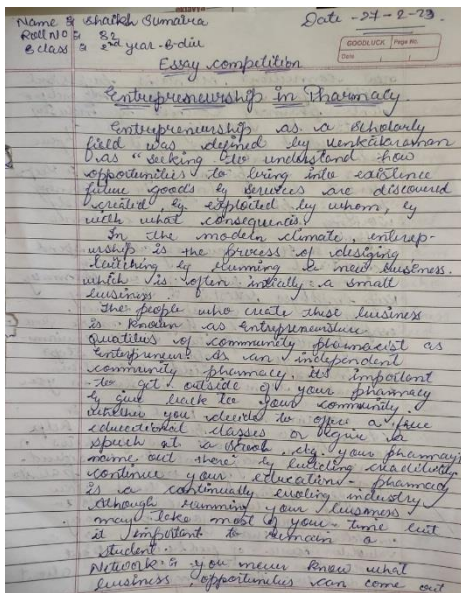 Name : Shaikh Sumaira Date - 27 - 2 - 23
Roll No : 32
class : 2nd year - B - div
GOODLUCK Page No.
Date
Essay competition
Entrepreneurship in Pharmacy
Entrepreneurship as a scholarly
field was defined by Venkataraman
as "seeking to understand how
opportunities to bring into existence
future goods & services are discovered
created, & exploited by whom, &
with what consequences.
In the modern climate, enterep-
urship is the process of designing
lauching & running a new business.
which is often intially a small
business.
The people who create these business
is known as Entrepreneurs
Qualities of community pharmacist as
Enterpreneur As an independent
community pharmacy. its important
to get outside of your pharmacy
& give back to your community.
whether you decide to offer a free
educational classes or give a
speech at a school, your pharmacy
name out there by building creactivity
continue your education - pharmacy
is a continually evoling industry
Although running your business
may take most of your time but
it important to remain a
student.
Network : you never know what
business opportunities can come out